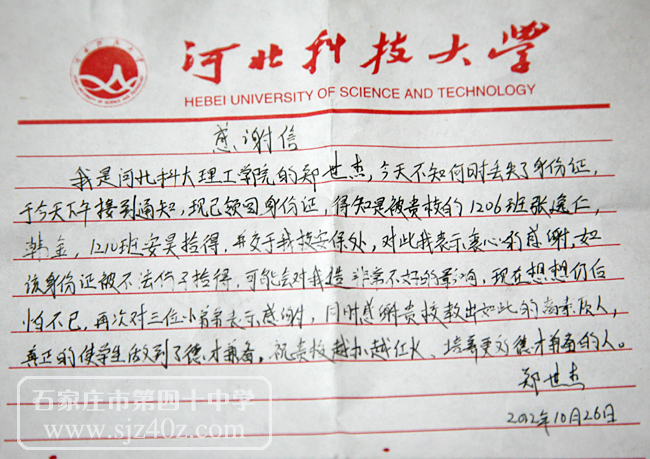 河北科技大学
HEBEI UNIVERSITY OF SCIENCE AND TECHNOLOGY
感谢信
我是河北科大理工学院的郑世杰，今天不知何时丢失了身份证，
于今天下午接到通知，现已领回身份证，得知是被贵校的1206班张逸仁，
韩金，1210班安昊拾得，并交于我校安保处，对此我表示衷心的感谢，如
该身份证被不法份子拾得，可能会对我造 非常不好的影响，现在想想仍后
怕不已，再次对三位小弟弟表示感谢，同时感谢贵校教出如此的高素质人，
真正的使学生做到了德才兼备，祝贵校越办越红火、培养更多德才兼备的人。
郑世杰
2012年10月26日
石家庄市第四十中学
www.sjz40z.com